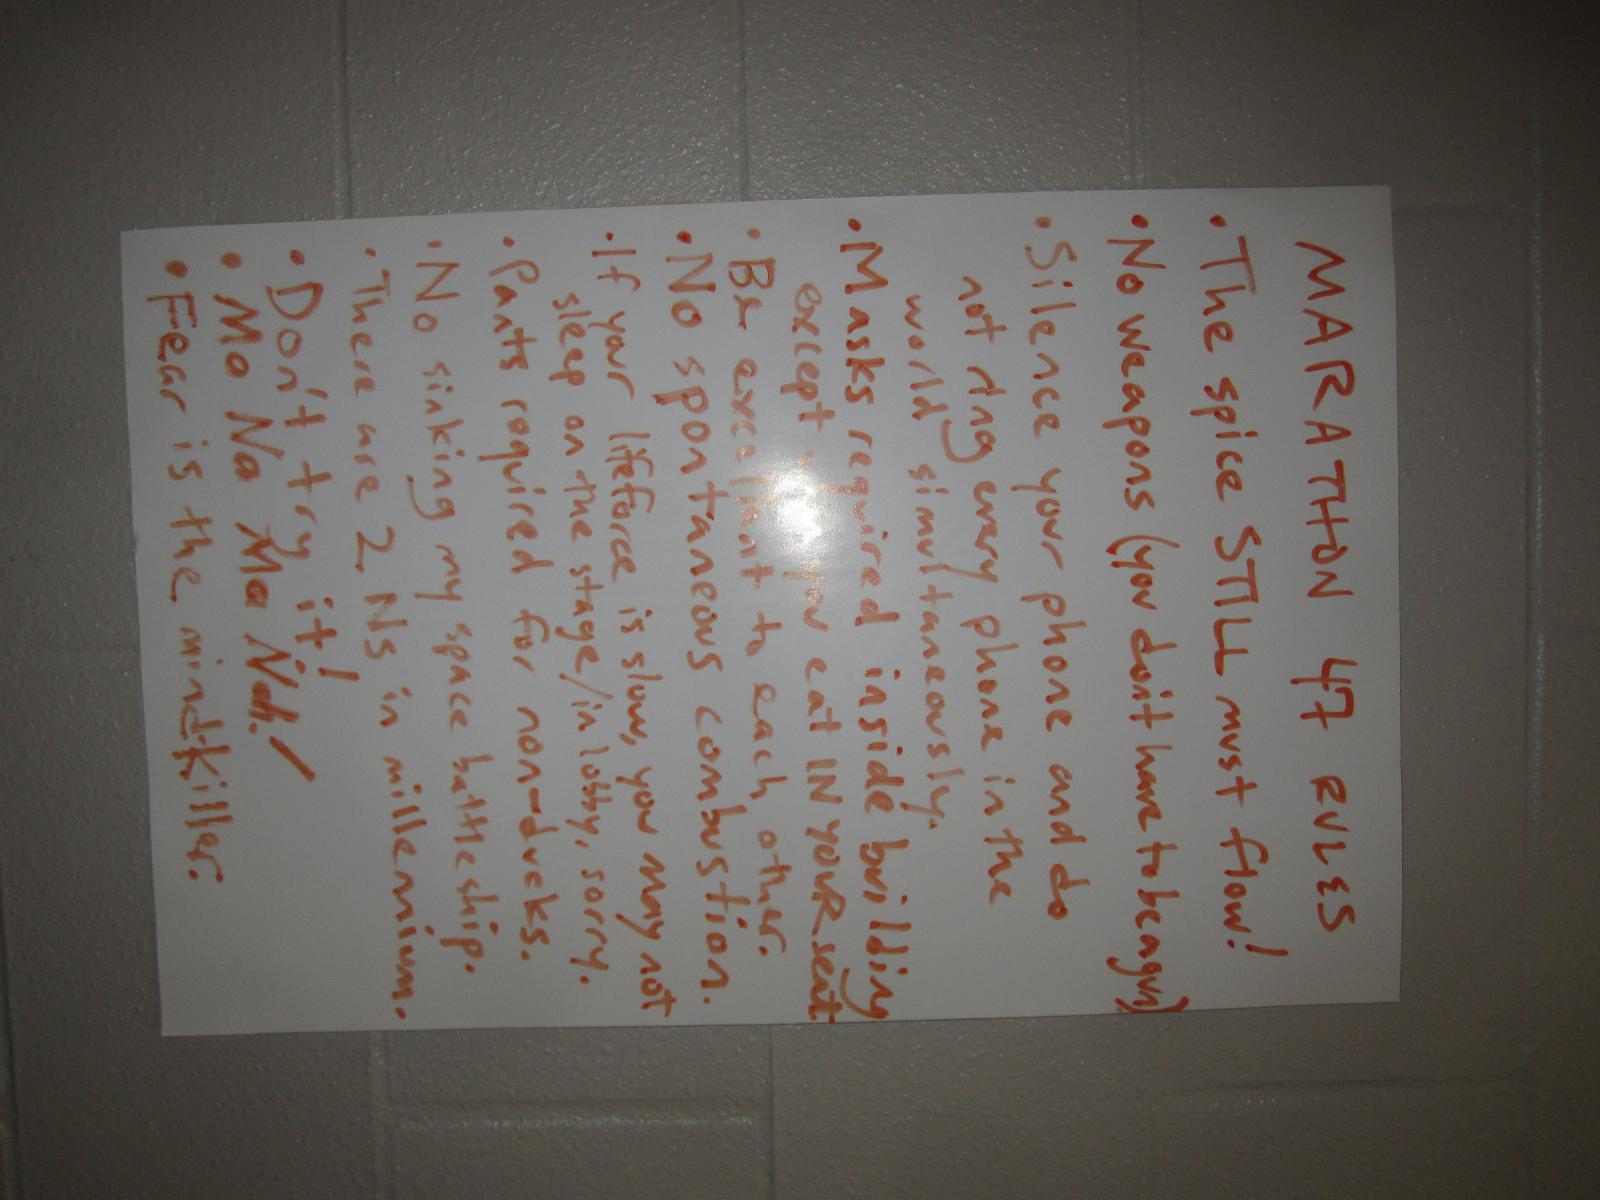 MARATHON 47 RULES
• The spice STILL must flow!
• No weapons (you don't have to be a gun)
• Silence your phone and do
not ring every phone in the
world simultaneously.
• Masks required inside building
except when you eat IN YOUR seat
• Be excellent to each other.
• No spontaneous combustion.
• If your lifeforce is slow, you may not
sleep on the stage/in lobby, sorry.
• Pants required for non-ducks.
• No sinking my space battleship.
• There are 2 Ns in millenium.
• Don't try it!
• Ma Na Ma Nah!
• Fear is the mind-killer.